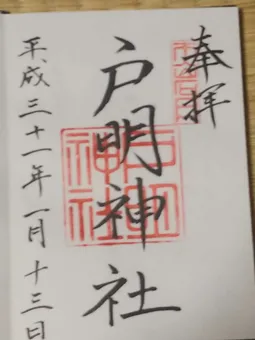 奉拝
戸明神社
平成三十一年一月十三日